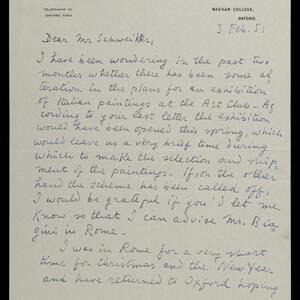 TELEPHONE Nº
OXFORD 47214
WADHAM COLLEGE,
OXFORD.
3 Feb. 51
Dear Mr Schweikher,
I have been wondering in the past two
months whether there has been some al
teration in the plans for an exhibition
of Italian paintings at the Art Club - Ac
cording to your last letter the exhibition
would have been opened this spring, which
would leave us a very brief time during
which to make the selection and ship
ment of the paintings - If, on the other
hand the scheme has been called off,
I would be grateful if you'd let me
know so that I can advise Mr. Bia
gini in Rome -
I was in Rome for a very short
time for Christmas and the New Year
and have returned to Oxford hoping